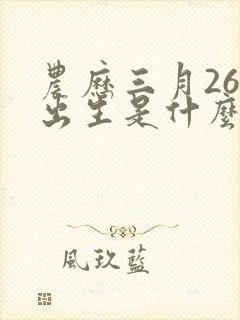 農曆三月26
出生是什麼
風玖藍